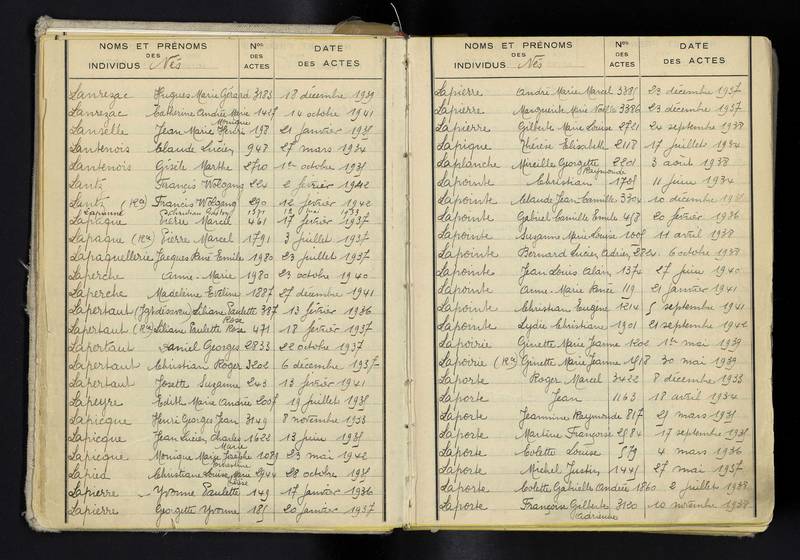 NOMS ET PRÉNOMS DES INDIVIDUS Nés | Nos DES ACTES | DATE DES ACTES
Lanrezac Hugues Marie Gérard 3183 18 décembre 1939
Lanrezac Catherine Andrée Marie 14 octobre 1941
Monique
Lanselle Jean Marie Henri 198 21 janvier 1935
Lantenois Claude Lucien 948 27 mars 1934
Lantenois Gisèle Marthe 2710 1er octobre 1935
Lantz Francis Wolgang 224 2 février 1942
Lantz (Rn) Francis Wolgang 290 12 février 1942
Lapagne Pierre Marcel 461 17 février 1937
Lapagne (Rn) Pierre Marcel 1791 3 juillet 1937
Lapaquellerie Jacques René Emile 1980 23 juillet 1937
Laperche Anne-Marie 1980 23 octobre 1940
Laperche Madeleine Eveline 1887 27 décembre 1941
Lapertaut Liliane Paulette 387 13 février 1936
Rose
Lapertaut (Rn) Liliane Paulette Rose 471 18 février 1937
Lapertaut Daniel Georges 2833 22 octobre 1937
Lapertaut Christian Roger 3202 6 décembre 1937
Lapertaut Josette Suzanne 243 13 février 1941
Lapeyre Edith Marie Andrée 2005 19 juillet 1935
Lapicque Henri Georges Jean 3149 8 novembre 1933
Lapicque Jean Lucien Charles 1622 13 juin 1935
Marie
Lapicque Monique Marie Josèphe 1089 23 mai 1942
Lapied Christiane Louise Marie 2944 28 octobre 1935
Rose
Lapierre Yvonne Paulette 149 17 janvier 1936
Lapierre Georgette Yvonne 185 20 janvier 1937
NOMS ET PRÉNOMS DES INDIVIDUS Nés | Nos DES ACTES | DATE DES ACTES
Lapierre André Marie Marcel 3385 23 décembre 1937
Lapierre Marguerite Marie Noëlle 3386 23 décembre 1937
Lapierre Gilberte Marie Louise 2721 24 septembre 1938
Lapigne Thérèse Elisabeth 2118 17 juillet 1934
Laplanche Mireille Georgette 2201 3 août 1938
Raymonde
Lapointe Christian 1705 11 juin 1934
Lapointe Claude Jean Camille 3304 10 décembre 1935
Lapointe Gabriel Camille Emile 458 20 février 1936
Lapointe Suzanne Marie Louise 1005 11 avril 1938
Lapointe Bernard Lucien Adrien 2824 6 octobre 1938
Lapointe Jean Louis Alain 1374 27 juin 1940
Lapointe Anne Marie Renée 119 21 janvier 1941
Lapointe Christian Eugène 1214 5 septembre 1941
Lapointe Lydie Christiane 1901 21 septembre 1942
Lapoirie Ginette Marie Jeanne 1202 1er mai 1939
Lapoirie (Rn) Ginette Marie Jeanne 1518 30 mai 1939
Laporte Roger Marcel 3422 8 décembre 1933
Laporte Jean 1163 18 avril 1934
Laporte Jeannine Raymonde 817 21 mars 1935
Laporte Martine Françoise 2584 17 septembre 1935
Laporte Colette Louise 579 4 mars 1936
Laporte Michel Justin 1445 27 mai 1937
Laporte Colette Gabrielle Andrée 1860 2 juillet 1938
Laporte Françoise Gilberte 3120 10 novembre 1938
Adrienne